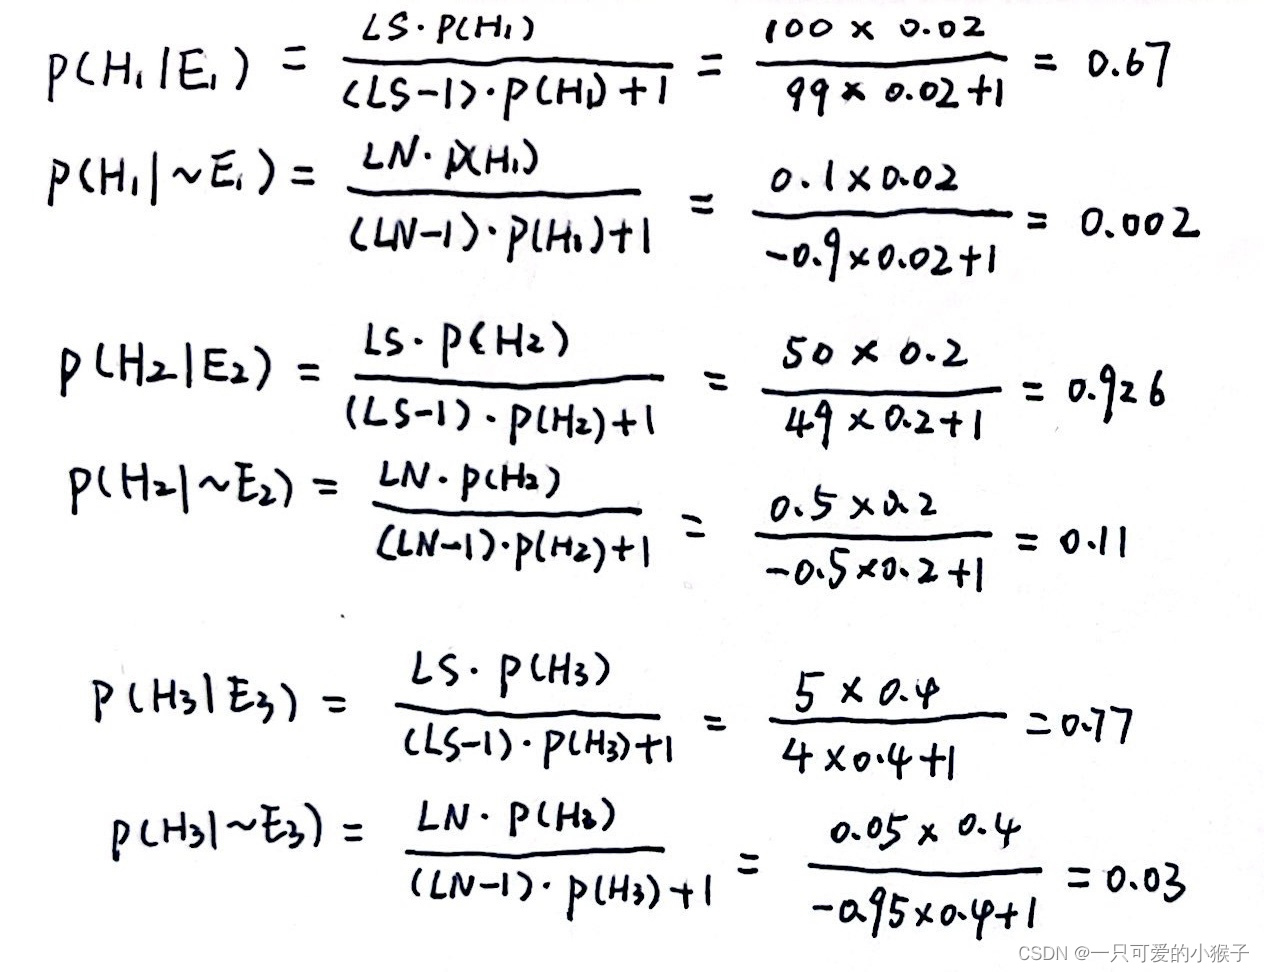 P(H₁|E₁) = LS·P(H₁) / (LS-1)·P(H₁)+1 = 100 × 0.02 / 99 × 0.02+1 = 0.67
P(H₁|~E₁) = LN·P(H₁) / (LN-1)·P(H₁)+1 = 0.1×0.02 / -0.9×0.02+1 = 0.002
P(H₂|E₂) = LS·P(H₂) / (LS-1)·P(H₂)+1 = 50 × 0.2 / 49 × 0.2+1 = 0.926
P(H₂|~E₂) = LN·P(H₂) / (LN-1)·P(H₂)+1 = 0.5×0.2 / -0.5×0.2+1 = 0.11
P(H₃|E₃) = LS·P(H₃) / (LS-1)·P(H₃)+1 = 5 × 0.4 / 4×0.4+1 = 0.77
P(H₃|~E₃) = LN·P(H₃) / (LN-1)·P(H₃)+1 = 0.05 × 0.4 / -0.95×0.4+1 = 0.03
CSDN @一只可爱的小猴子